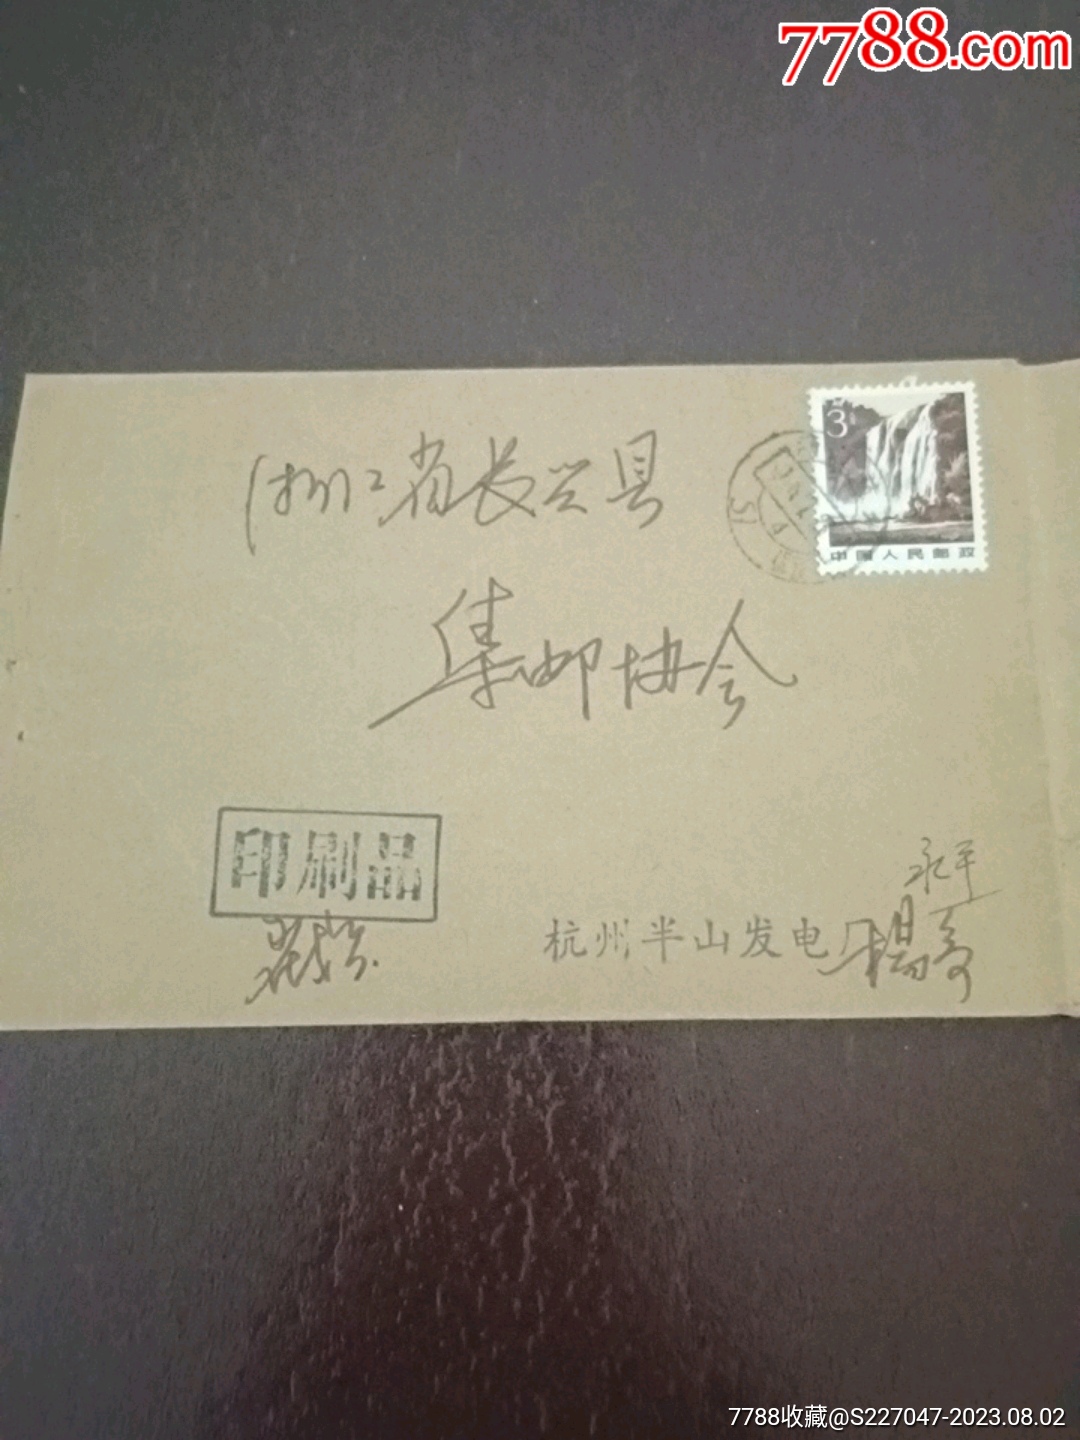 7788.com
3
中国人民邮政
浙江省长兴县
集邮协会
印刷品
永平
杭州半山发电厂杨
7788收藏@S227047-2023.08.02